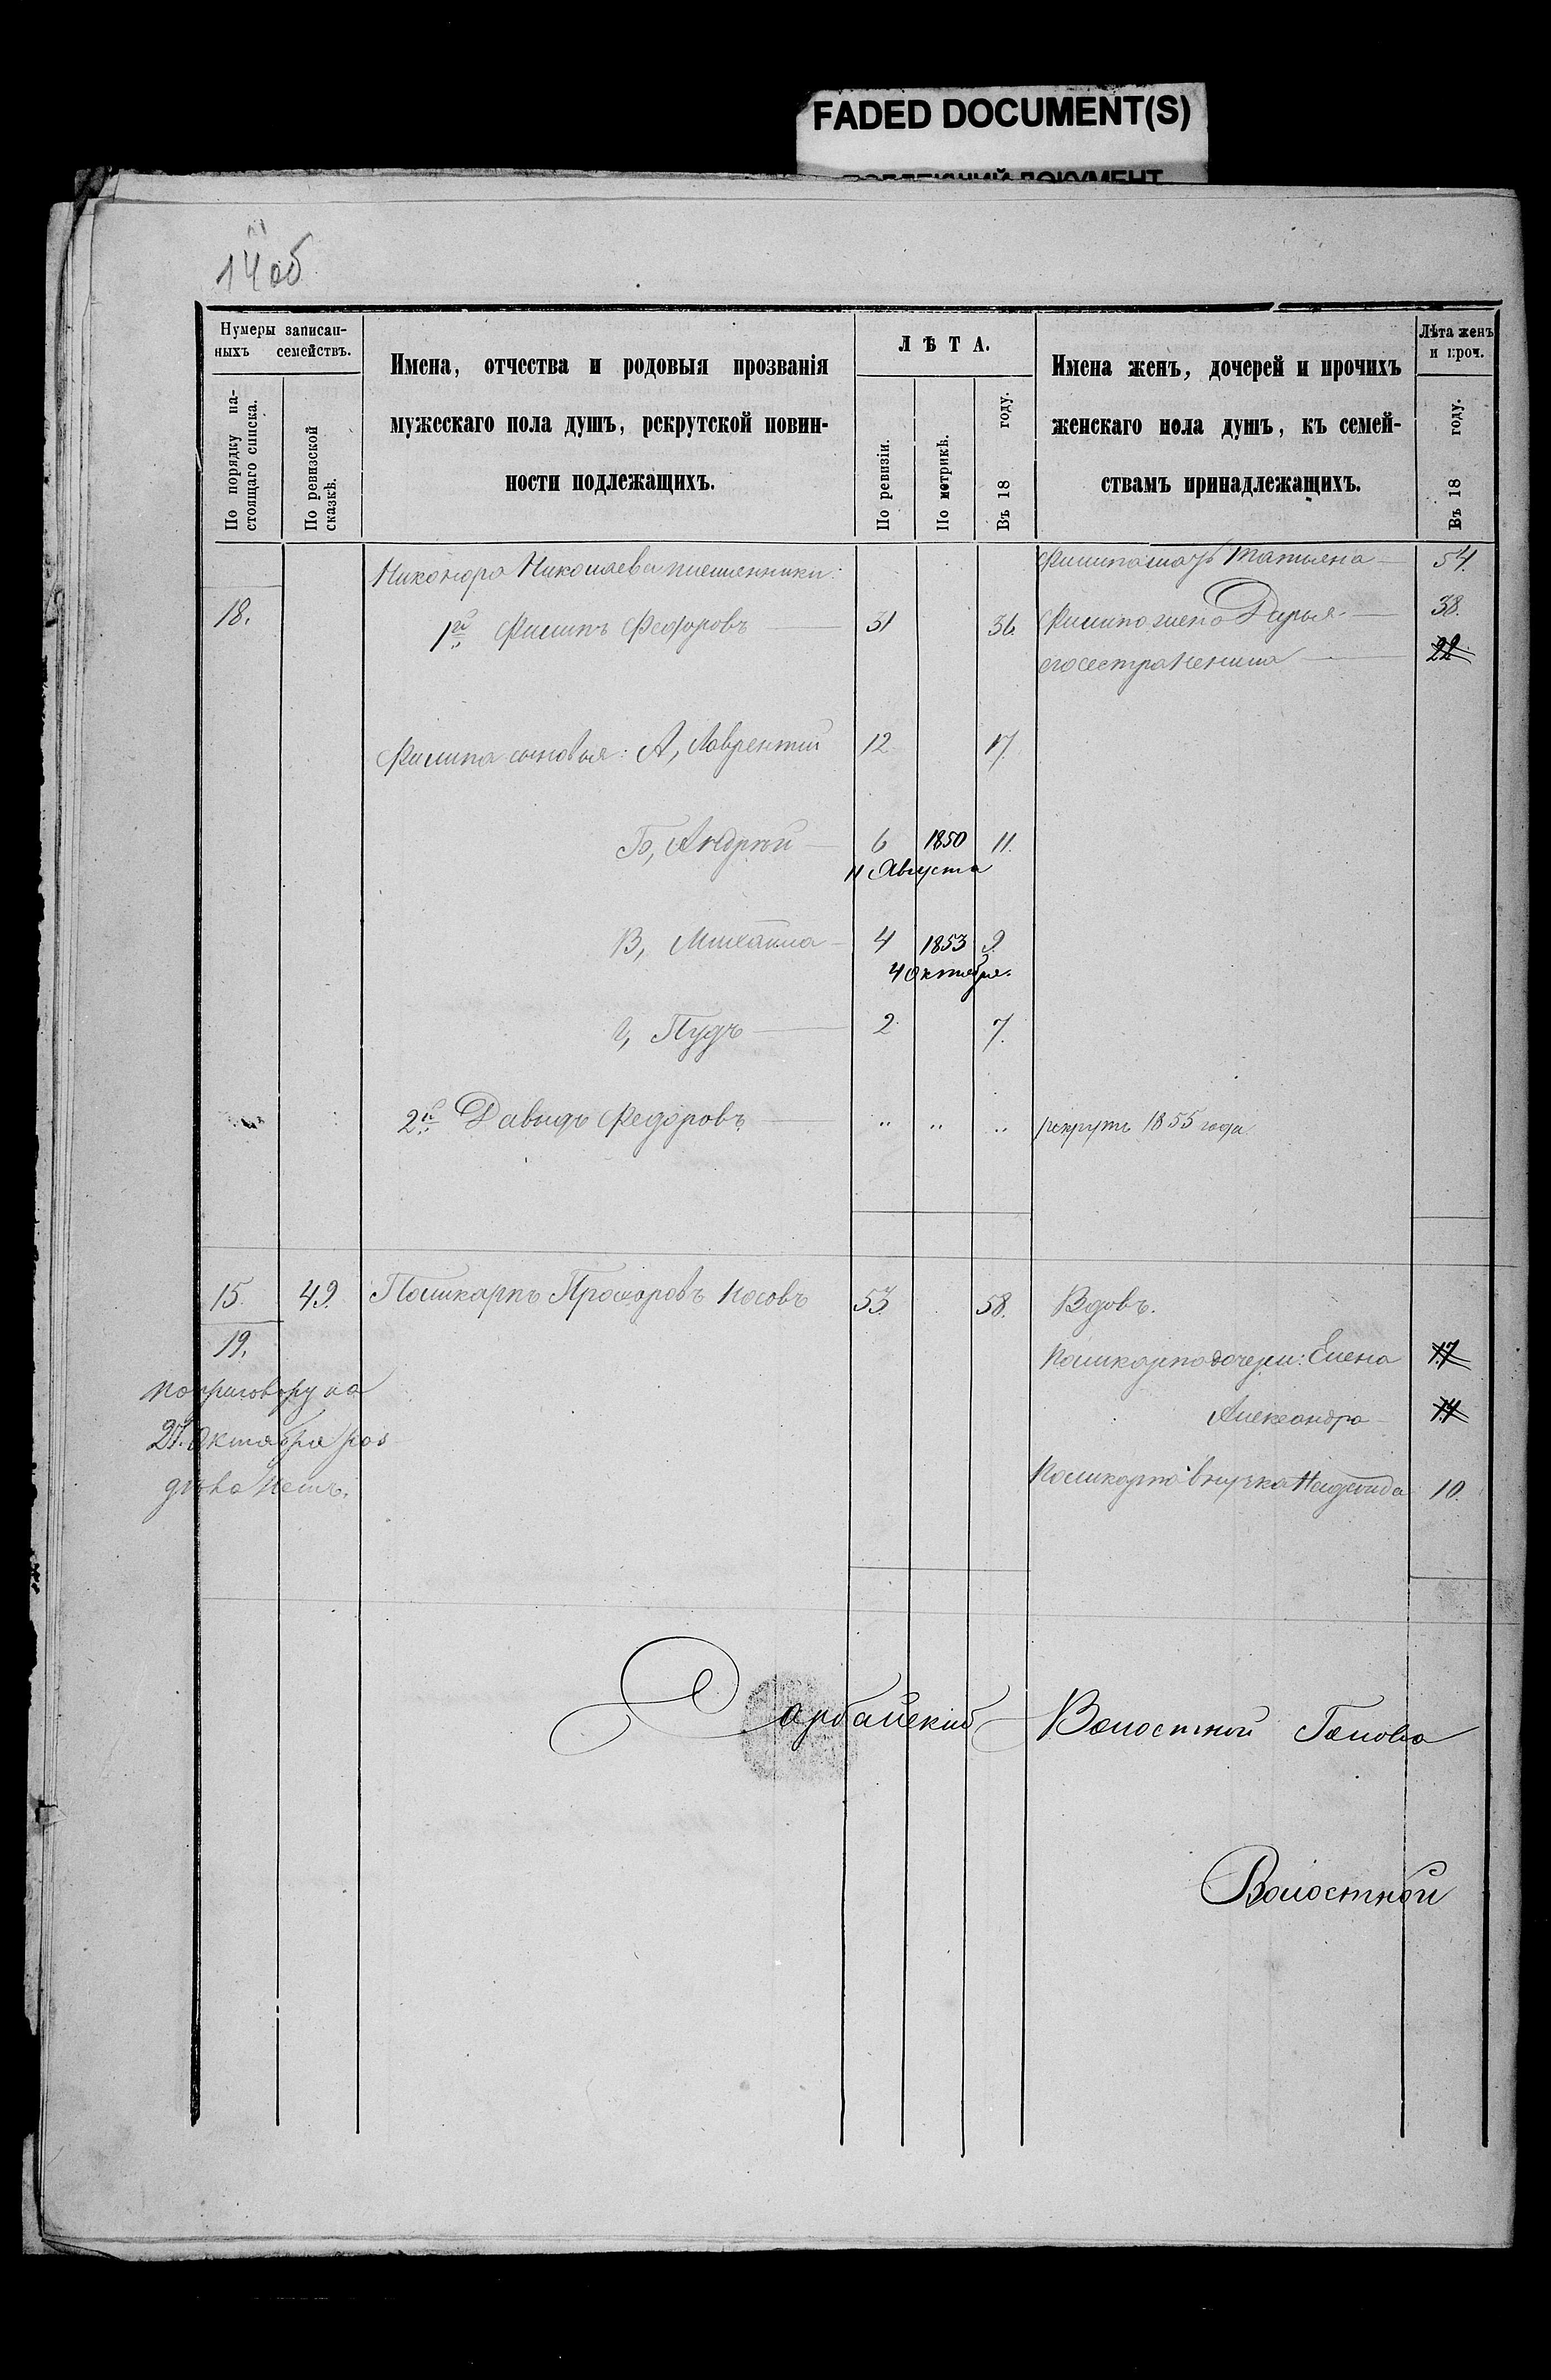 FADED DOCUMENT(S)
14 об
Нумеры записан-
ныхъ семействъ.
По порядку на-
стоящаго списка.
По ревизской
сказкѣ.
Имена, отчества и родовыя прозванія
мужескаго пола душъ, рекрутской повин-
ности подлежащихъ.
ЛѢТА.
По ревизіи.
По метрикѣ.
Въ 18 году.
Имена женъ, дочерей и прочихъ
женскаго пола душъ, къ семей-
ствамъ принадлежащихъ.
Лѣта женъ
и проч.
Въ 18 году.
Никонора Николаева племенники:
Филипа мать Татьяна 54.
18. 1й Филипъ Федоровъ 31 36. Филипа жена Дарья 38.
его сестра Ненила 22
Филипа сыновья: А, Лаврентий 12 17.
Б, Андрей 6 1850 11.
11 Августа
В, Михайла 4 1853 9.
4 Октября.
Г, Пудъ 2. 7.
2й Давыдъ Федоровъ рекрутъ 1855 года.
15. 49. Поликарпъ Прохоровъ Косовъ 53. 58. Вдовъ.
19.
Поликарпа дочери: Елена 17
по приговору на
Александра 14
27. Октября раз
дѣла нетъ.
Поликарпа внучка 10.
Сарбайский Волостной Голова
Волостной